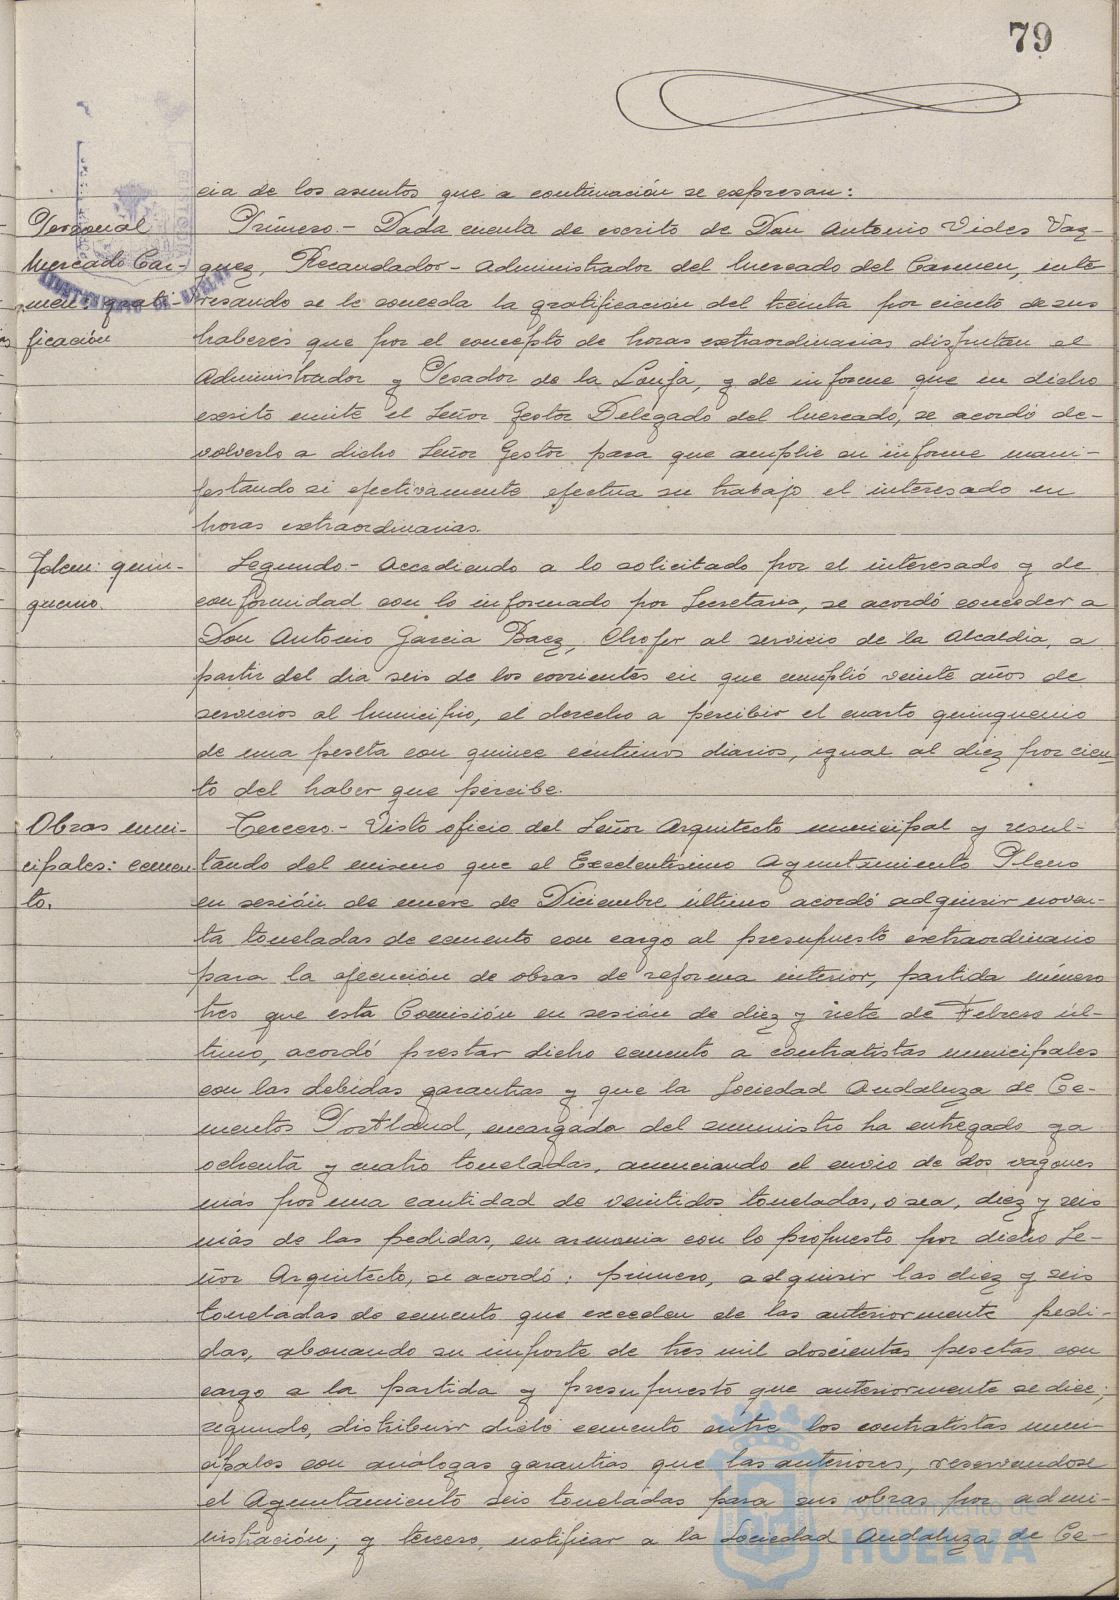 79
cia de los asuntos que a continuación se expresan:
Personal
Mercado Car-
men: grati-
ficación
Primero.- Dada cuenta de escrito de Don Antonio Vides Vaz-
quez, Recaudador-Administrador del Mercado del Carmen, inte
resando se le conceda la gratificación del treinta por ciento de sus
haberes que por el concepto de horas extraordinarias disfrutan el
Administrador y Pesador de la Lonja, y de informe que en dicho
escrito emite el Señor Gestor Delegado del Mercado, se acordó de-
volverlo a dicho Señor Gestor para que amplie su informe mani-
festando si efectivamente efectua su trabajo el interesado en
horas extraordinarias.
Idem: quin-
quenio.
Segundo.- Accediendo a lo solicitado por el interesado y de
conformidad con lo informado por Secretaria, se acordó conceder a
Don Antonio Garcia Baez, Chofer al servicio de la Alcaldia, a
partir del dia seis de los corrientes en que cumplió veinte años de
servicios al Municipio, el derecho a percibir el cuarto quinquenio
de una peseta con quince centimos diarios, igual al diez por cien
to del haber que percibe.
Obras muni-
cipales: cemen-
to.
Tercero.- Visto oficio del Señor Arquitecto municipal y resul-
tando del mismo que el Excelentisimo Ayuntamiento Pleno
en sesión de nueve de Diciembre último acordó adquirir noven-
ta toneladas de cemento con cargo al presupuesto extraordinario
para la ejecución de obras de reforma interior, partida número
tres que esta Comisión en sesión de diez y siete de Febrero úl-
timo, acordó prestar dicho cemento a contratistas municipales
con las debidas garantias y que la Sociedad Andaluza de Ce-
mentos Portland, encargada del suministro ha entregado ya
ochenta y cuatro toneladas, anunciando el envio de dos vagones
más por una cantidad de veintidos toneladas, o sea, diez y seis
más de las pedidas, en armonia con lo propuesto por dicho Se-
ñor Arquitecto, se acordó: primero, adquirir las diez y seis
toneladas de cemento que exceden de las anteriormente pedi-
das, abonando su importe de tres mil doscientas pesetas con
cargo a la partida y presupuesto que anteriormente se dice;
segundo, distribuir dicho cemento entre los contratistas muni-
cipales con análogas garantias que las anteriores, reservandose
el Ayuntamiento seis toneladas para sus obras por admi-
nistración; y tercero, notificar a la Sociedad Andaluza de Ce-
Ayuntamiento de
HUELVA